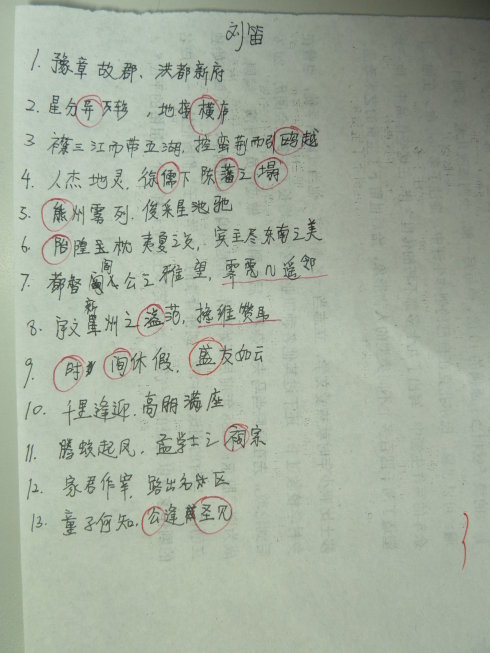 刘笛
1. 豫章故郡、洪都新府
2. 星分异，地接横庐
3 襟三江而带五湖，控蛮荆而引瓯越
4. 人杰地灵，徐儒下陈蕃之塌
5. 熊州雾列，俊采星池驰
6. 胎隍至枕夷夏之交，宾主尽东南之美
7. 都督阎公之雅望，遥邻
8. 宇文新州之溢范，
9. 时间休假，盛友如云
10. 千里逢迎，高朋满座
11. 腾蛟起凤，孟学士之祠宗
12. 家君作宰，路出名区
13. 童子何知，公逢圣